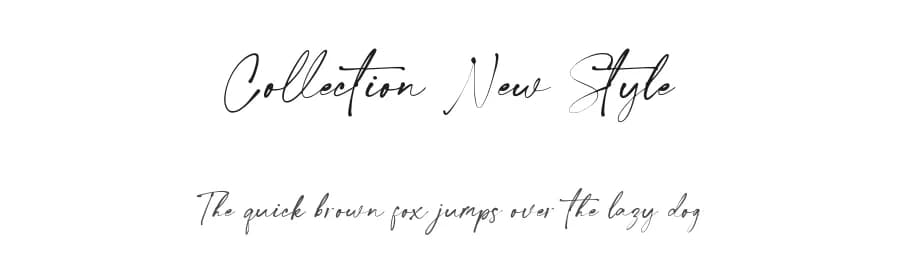 Collection New Style
The quick brown fox jumps over the lazy dog